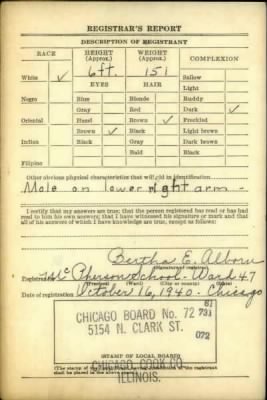 REGISTRAR'S REPORT
DESCRIPTION OF REGISTRANT
RACE HEIGHT (Approx.) WEIGHT (Approx.) COMPLEXION
White ✓ 6ft. 151 Sallow
EYES HAIR Light
Negro Blue Blonde Ruddy
Gray Red Dark ✓
Oriental Hazel Brown ✓ Freckled
Brown ✓ Black Light brown
Indian Black Gray Dark brown
Bald Black
Filipino
Other obvious physical characteristics that will aid in identification
Mole on lower right arm -
I certify that my answers are true; that the person registered has read or has had
read to him his own answers; that I have witnessed his signature or mark and that
all of his answers of which I have knowledge are true, except as follows:
Bertha E. Alborn
(Signature of registrar)
Registrar for McPherson School - Ward 47
(Precinct) (Ward) (City or county) (State)
Date of registration October 16, 1940 - Chicago
CHICAGO BOARD No. 72
5154 N. CLARK ST.
61
731
072
STAMP OF LOCAL BOARD
CHICAGO, COOK CO.
ILLINOIS.
(The stamp of the
shall be placed in the above